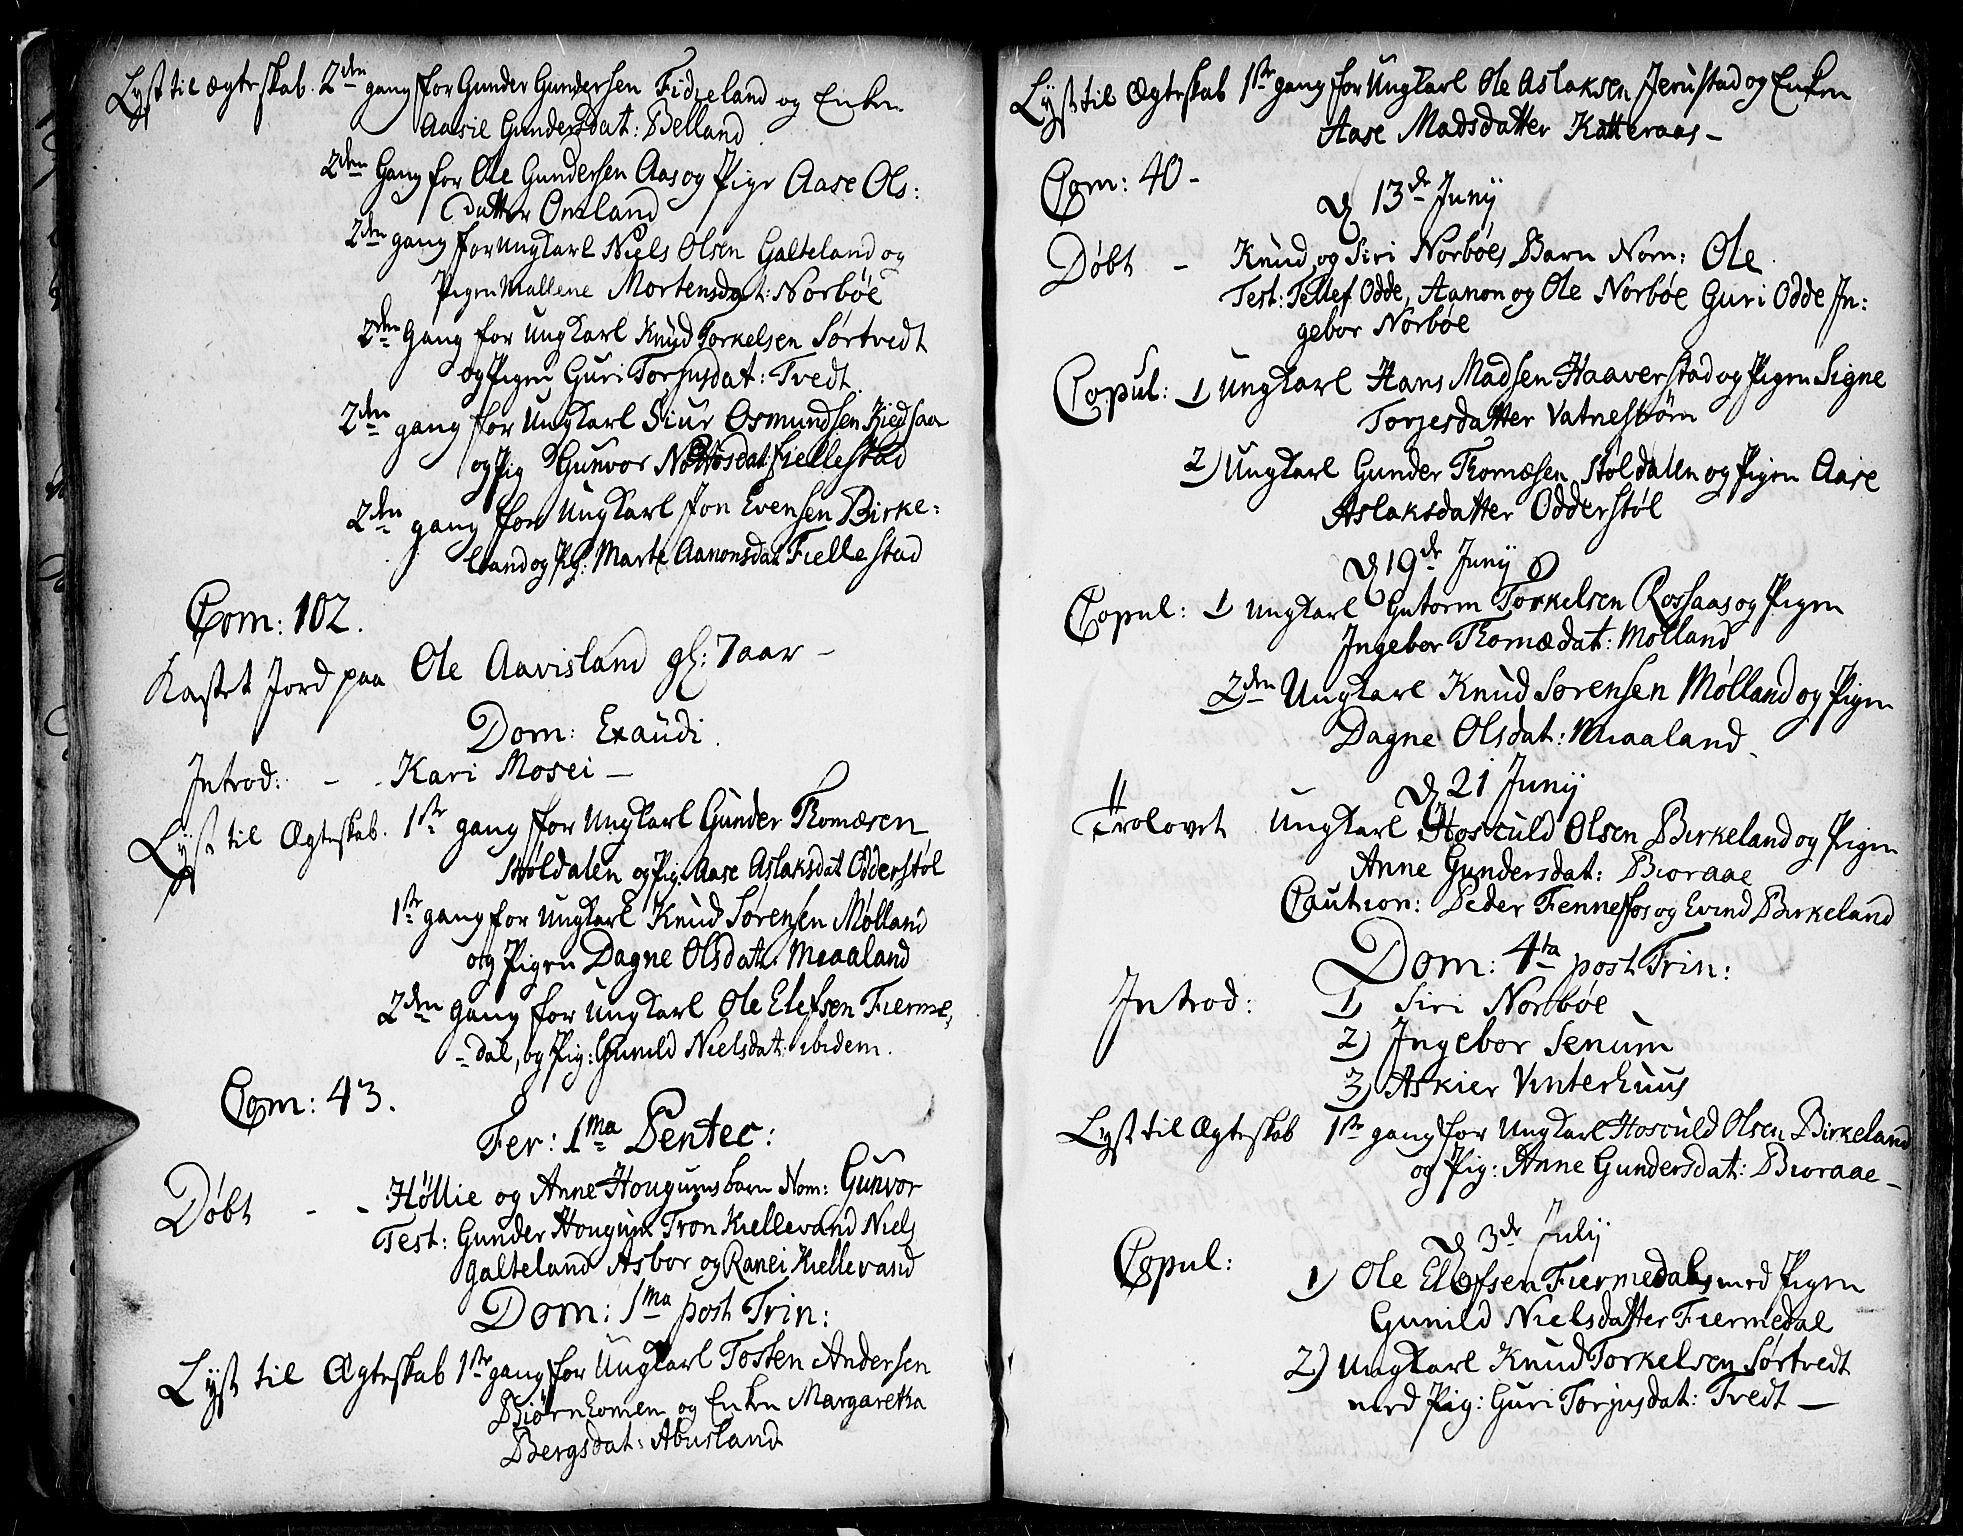 Lyst til ægteskab. 2den gang for Gunder Gundersen Fidjeland og Enken
Aasie Gundersdat: Belland
2den Gang for Ole Gundersen Aas og Pige Aase Ols:
datter Omland
2den gang for Ungkarl Niels Olsen Galteland og
Pigen Mallene Mortensdat: Norbøe
2den Gang for Ungkarl Knud Torkelsen Sørtvedt
og Pigen Guri Torjusdat: Tvedt
2den gang for Ungkarl Siur Osmundsen Kiedsaa
og Pig Gunvor Fiellestad
2den gang for Ungkarl Jon Evensen Birke:
land og Pig: Marte Aanonsdat Fiellestad
Com: 102.
Kastet Jord paa Ole Aavisland gl: 7 aar -
Dom: Exaudi.
Introd: - - Kari Mosei -
Lyst til Ægteskab. 1ste gang for Ungkarl Gunder Thomæsen
Støldalen og Pig: Aase Aslaksdat Odderstøl
1ste gang for Ungkarl Knud Sørensen Mølland
og Pigen Dagne Olsdat: Miaaland
2den gang for Ungkarl Ole Elefsen Fierme,
- dal, og Pig: Gunild Nielsdat: ibidem.
Com: 43.
Fer: 1ma Pentec:
Døbt - - Høllie og Anne Hougums barn Nom: Gunvor
Test: Gunder Hougum Tron Kiellevand Niels
Galteland Asbor og Ranei Kiellevand
Dom: 1ma post Trin:
Lyst til Ægteskab 1ste gang for Ungkarl Tosten Andersen
Biørnhomen og Enken Margaretha
Bergsdat: Abusland
Lyst til Ægteskab 1ste gang for Ungkarl Ole Aslaksen Jerustad og Enken
Aase Madsdatter Katteraas -
Com: 40 -
D 13de Junij
Døbt - Knud og Siri Norbøes Barn Nom: Ole.
Test: Tellef Odde, Aanon og Ole Norbøe Guri Odde In:
gebor Norbøe
Copul: 1 Ungkarl Hans Madsen Haaverstad og Pigen Signe
Torjesdatter Vatnestrøm
2) Ungkarl Gunder Thomæsen Støldalen og Pigen Aase
Aslaksdatter Odderstøl
D 19de Junij
Copul: 1 Ungkarl Gutorm Torkelsen Rossaas og Pigen
Ingebor Thomædat: Mølland
2den Ungkarl Knud Sørensen Mølland og Pigen
Dagne Olsdat: Miaaland
D 21 Junij
Trolovet Ungkarl Hosculd Olsen Birkeland og Pigen
Anne Gundersdat: Bioraae
Caution: Peder Fennefos og Evind Birkeland
Dom: 4ta post Trin:
Introd: 1) Siri Norbøe
2) Ingebor Senum
3) Askier Vinterhuus
Lyst til Ægteskab 1ste gang for Ungkarl Hosculd Olsen Birkeland
og Pig: Anne Gundersdat: Bioraae -
D 3de Julij
Copul: 1) Ole Elefsen Fiermedal med Pigen
Gunild Nielsdatter Fiermedal
2) Ungkarl Knud Torkelsen Sørtvedt
med Pig: Guri Torjusdat: Tvedt -